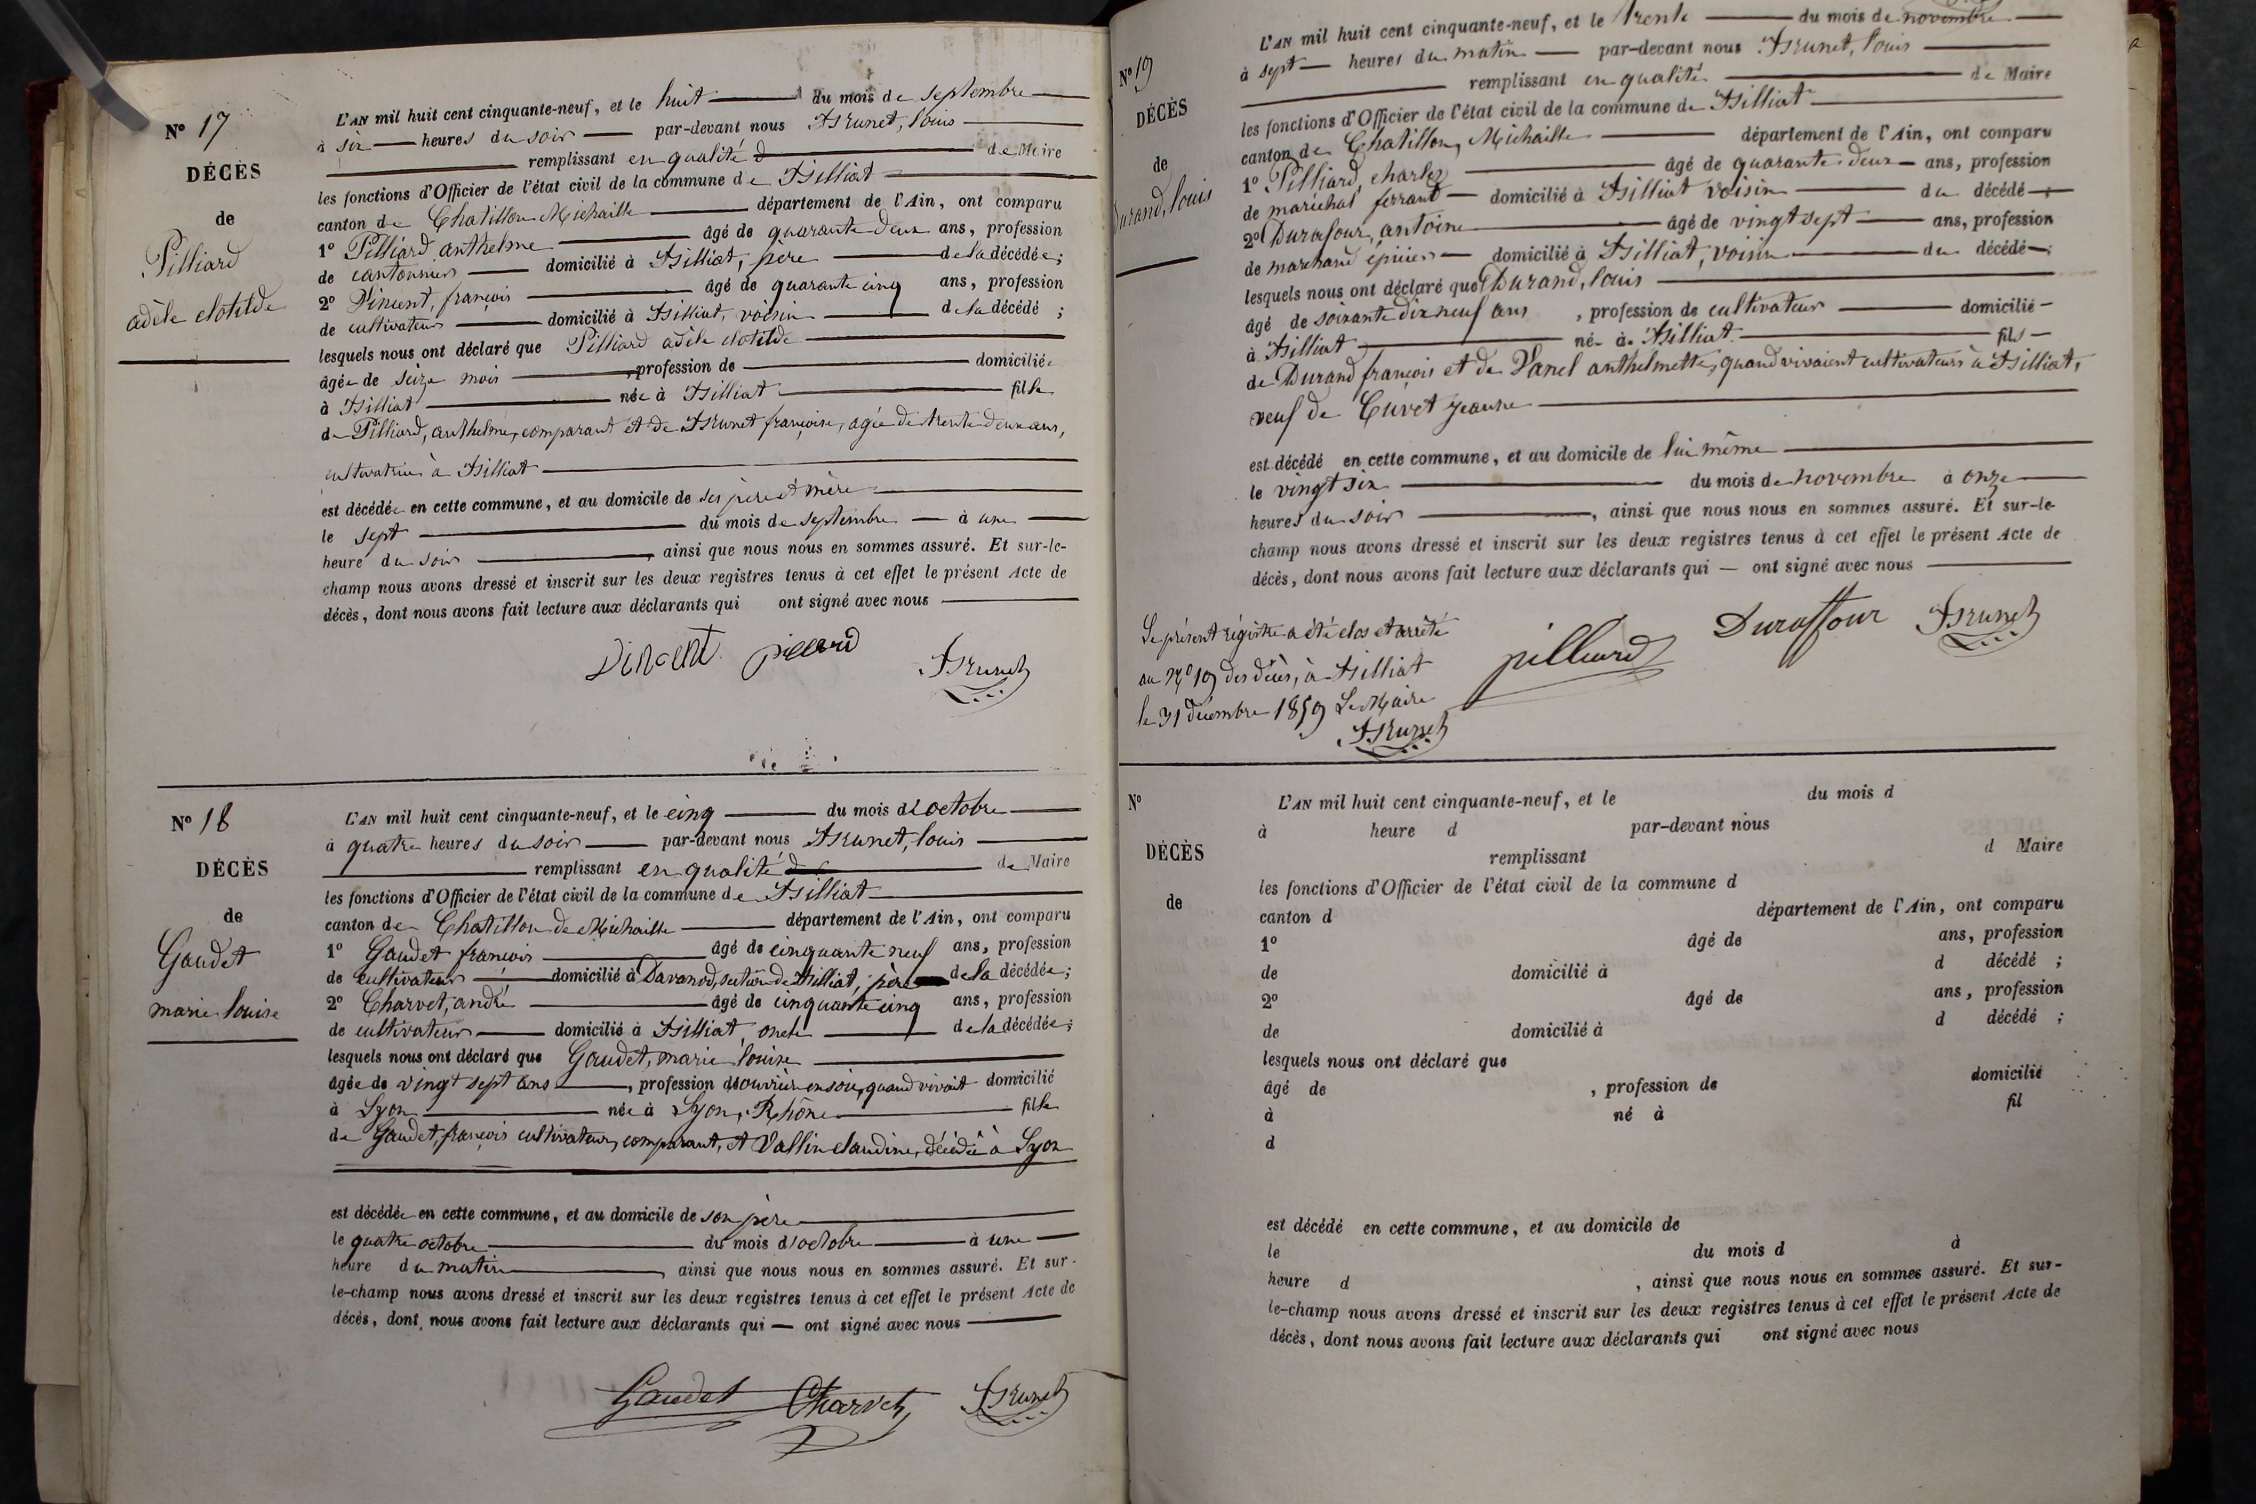 N° 17
DÉCÈS
de
Pilliard
adèle clotilde
L'AN mil huit cent cinquante-neuf, et le huit du mois de septembre
à six heures du soir par-devant nous Brunet, louis
remplissant en qualité de Maire
les fonctions d'Officier de l'état civil de la commune de Billiat
canton de Chatillon Michaille département de l'Ain, ont comparu
1° Pilliard anthelme âgé de quarante deux ans, profession
de cantonnier domicilié à Billiat, père de la décédée;
2° Vincent, françois âgé de quarante cinq ans, profession
de cultivateur domicilié à Billiat, voisin de la décédé ;
lesquels nous ont déclaré que Pilliard adèle clotilde
âgée de seize mois , profession de domiciliée
à Billiat née à Billiat fille
de Pilliard, anthelme, comparant et de Brunet françoise, agée de trente deux ans,
cultivatrice à Billiat
est décédée en cette commune, et au domicile de ses père et mère
le sept du mois de septembre à une
heure du soir , ainsi que nous nous en sommes assuré. Et sur-le-
champ nous avons dressé et inscrit sur les deux registres tenus à cet effet le présent Acte de
décès, dont nous avons fait lecture aux déclarants qui ont signé avec nous
Vincent pilliard Brunet
N° 18
DÉCÈS
de
Gaudet
marie louise
L'AN mil huit cent cinquante-neuf, et le cinq du mois d'octobre
à quatre heures du soir par-devant nous Brunet, louis
remplissant en qualité de Maire
les fonctions d'Officier de l'état civil de la commune de Billiat
canton de Chatillon de Michaille département de l'Ain, ont comparu
1° Gaudet françois âgé de cinquante neuf ans, profession
de cultivateur domicilié à Davanod, section de Billiat, père de la décédée;
2° Charvet, andré âgé de cinquante cinq ans, profession
de cultivateur domicilié à Billiat, oncle de la décédée;
lesquels nous ont déclaré que Gaudet, marie louise
âgée de vingt sept ans , profession de ouvrière en soie, quand vivait domicilié
à Lyon née à Lyon, Rhône fille
de Gaudet, françois cultivateur, comparant, et Vallin claudine, décédée à Lyon
est décédée en cette commune, et au domicile de son père
le quatre octobre du mois d'octobre à une
heure du matin , ainsi que nous nous en sommes assuré. Et sur-
le-champ nous avons dressé et inscrit sur les deux registres tenus à cet effet le présent Acte de
décès, dont nous avons fait lecture aux déclarants qui — ont signé avec nous
Gaudet Charvet Brunet
N° 19
DÉCÈS
de
Durand, louis
L'AN mil huit cent cinquante-neuf, et le trente du mois de novembre
à sept heures du matin par-devant nous Brunet, louis
remplissant en qualité de Maire
les fonctions d'Officier de l'état civil de la commune de Billiat
canton de Chatillon, Michaille département de l'Ain, ont comparu
1° Pilliard, charles âgé de quarante deux ans, profession
de maréchal ferrant domicilié à Billiat voisin du décédé ;
2° Durafour, antoine âgé de vingt sept ans, profession
de marchand épicier domicilié à Billiat, voisin du décédé ;
lesquels nous ont déclaré que Durand, louis
âgé de soixante dix neuf ans , profession de cultivateur domicilié
à Billiat né à Billiat fils
de Durand françois et de Vanel anthelmette, quand vivaient cultivateurs à Billiat,
veuf de Cuvet jeanne
est décédé en cette commune, et au domicile de lui même
le vingt six du mois de novembre à onze
heures du soir , ainsi que nous nous en sommes assuré. Et sur-le-
champ nous avons dressé et inscrit sur les deux registres tenus à cet effet le présent Acte de
décès, dont nous avons fait lecture aux déclarants qui — ont signé avec nous
pilliard Duraffour Brunet
Le présent régistre a été clos et arrêté
au N° 19 des décès, à Billiat
le 31 décembre 1859 Le Maire
Brunet
N°
DÉCÈS
de
L'AN mil huit cent cinquante-neuf, et le du mois d
à heure d par-devant nous
remplissant d Maire
les fonctions d'Officier de l'état civil de la commune d
canton d département de l'Ain, ont comparu
1° âgé de ans, profession
de domicilié à d décédé ;
2° âgé de ans, profession
de domicilié à d décédé ;
lesquels nous ont déclaré que
âgé de , profession de domicilié
à né à fil
d
est décédé en cette commune, et au domicile de
le du mois d à
heure d , ainsi que nous nous en sommes assuré. Et sur-
le-champ nous avons dressé et inscrit sur les deux registres tenus à cet effet le présent Acte de
décès, dont nous avons fait lecture aux déclarants qui ont signé avec nous